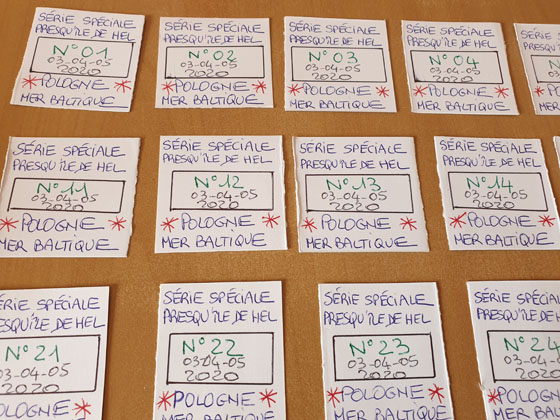 SÉRIE SPÉCIALE
PRESQU'ÎLE DE HEL
N°01
03-04-05
2020
* POLOGNE *
MER BALTIQUE
SÉRIE SPÉCIALE
PRESQU'ÎLE DE HEL
N°02
03-04-05
2020
* POLOGNE *
MER BALTIQUE
SÉRIE SPÉCIALE
PRESQU'ÎLE DE HEL
N°03
03-04-05
2020
* POLOGNE *
MER BALTIQUE
SÉRIE SPÉCIALE
PRESQU'ÎLE DE HEL
N°04
03-04-05
2020
* POLOGNE *
MER BALTIQUE
SÉRIE SPÉCIALE
PRESQU'ÎLE DE HEL
N°11
03-04-05
2020
* POLOGNE *
MER BALTIQUE
SÉRIE SPÉCIALE
PRESQU'ÎLE DE HEL
N°12
03-04-05
2020
* POLOGNE *
MER BALTIQUE
SÉRIE SPÉCIALE
PRESQU'ÎLE DE HEL
N°13
03-04-05
2020
* POLOGNE *
MER BALTIQUE
SÉRIE SPÉCIALE
PRESQU'ÎLE DE HEL
N°14
03-04-05
2020
* POLOGNE *
MER BALTIQUE
SÉRIE SPÉCIALE
ESQU'ÎLE DE HEL
N°21
03-04-05
2020
POLOGNE *
SÉRIE SPÉCIALE
PRESQU'ÎLE DE HEL
N°22
03-04-05
2020
* POLOGNE *
MER BALTIQUE
SÉRIE SPÉCIALE
PRESQU'ÎLE DE HEL
N°23
03-04-05
2020
* POLOGNE *
SÉRIE SPÉCIA
PRESQU'ÎLE DE
N°24
03-04-05
2020
* POLOGNE